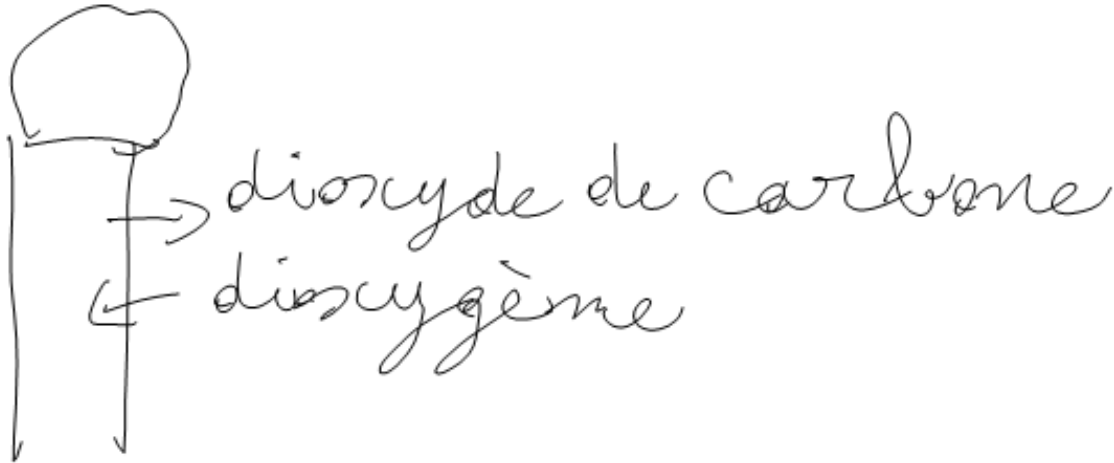 dioxyde de carbone
dioxygène